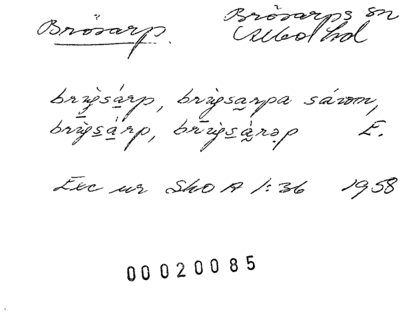 Brösarp. Brösarps sn
Albo hd
brỳsárp, brỳsarpa sáron,
brỳsárp, brỳsárəp E.
Exc ur SkO A 1:36 1958
00020085